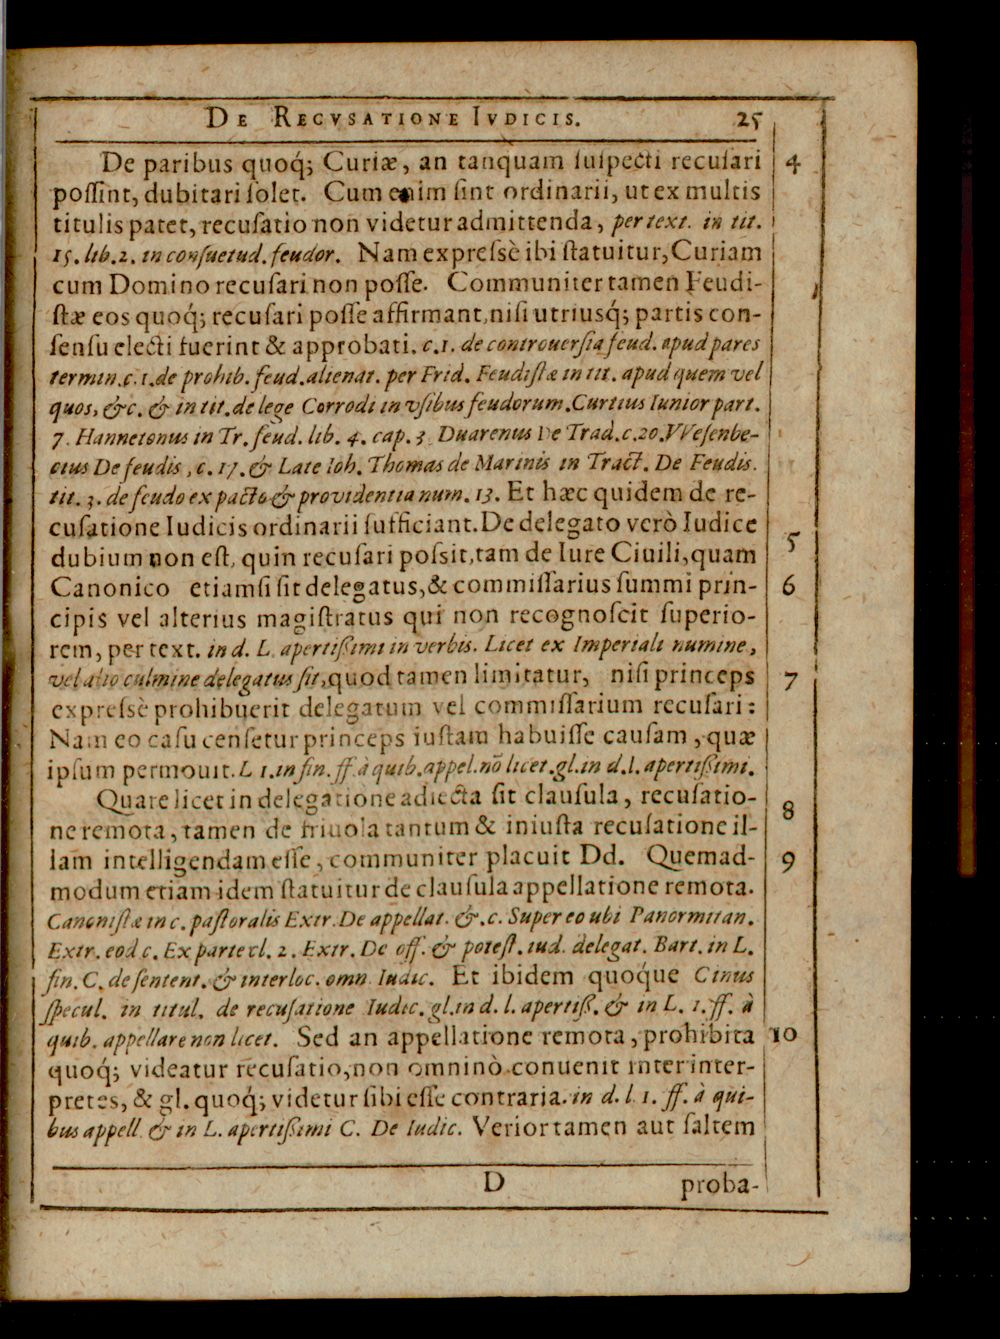 DE RECVSATIONE IVDICIS. 25
De paribus quoq́; Curiæ, an tanquam ſuſpecti recuſari 4
poſſint, dubitari ſolet. Cum enim ſint ordinarii, ut ex multis
titulis patet, recuſatio non videtur admittenda, per text. in tit.
15. lib. 2. in conſuetud. feudor. Nam expreſsè ibi ſtatuitur, Curiam
cum Domino recuſari non poſſe. Communiter tamen Feudi-
ſtæ eos quoq́; recuſari poſſe affirmant, niſi utriusq́; partis con-
ſenſu electi fuerint & approbati. c. 1. de controuerſia feud. apud pares
termin. c. 1. de prohib. feud. alienat. per Frid. Feudiſtæ in tit. apud quem vel
quos, &c. & in tit. de lege Corrodi in vſibus feudorum. Curtius Iunior part.
7. Hannetonus in Tr. feud. lib. 4. cap. 3. Duarenus De Trad. c. 20. VVeſenbe-
cius De feudis, c. 17. & Late Ioh. Thomas de Marinis in Tract. De Feudis.
tit. 3. de feudo ex pacto & providentia num. 13. Et hæc quidem de re-
cuſatione Iudicis ordinarii ſufficiant. De delegato verò Iudice 5
dubium non eſt, quin recuſari poſsit, tam de Iure Ciuili, quam
Canonico etiamſi ſit delegatus, & commiſſarius ſummi prin- 6
cipis vel alterius magiſtratus qui non recognoſcit ſuperio-
rem, per text. in d. L. apertißimi in verbis. Licet ex Imperiali numine,
vel alio culmine delegatus ſit, quod tamen limitatur, niſi princeps 7
expreſsè prohibuerit delegatum vel commiſſarium recuſari:
Nam eo caſu cenſetur princeps iuſtam habuiſſe cauſam, quæ
ipſum permouit. L 1. in fin. ff. à quib. appel. nõ licet. gl. in d. l. apertißimi.
Quare licet in delegatione adiecta ſit clauſula, recuſatio- 8
ne remota, tamen de friuola tantum & iniuſta recuſatione il-
lam intelligendam eſſe, communiter placuit Dd. Quemad- 9
modum etiam idem ſtatuitur de clauſula appellatione remota.
Canoniſtæ in c. paſtoralis Extr. De appellat. &. c. Super eo ubi Panormitan.
Extr. eod c. Ex parte el. 2. Extr. De off. & poteſt. iud. delegat. Bart. in L.
fin. C. de ſentent. & interloc. omn. Iudic. Et ibidem quoque Cinus
ſpecul. in titul. de recuſatione Iudic. gl. in d. l. apertiß. & in L. 1. ff. à
quib. appellare non licet. Sed an appellatione remota, prohibita 10
quoq́; videatur recuſatio, non omninò conuenit inter inter-
pretes, & gl. quoq́; videtur ſibi eſſe contraria. in d. l. 1. ff. à qui-
bus appell. & in L. apertißimi C. De Iudic. Verior tamen aut ſaltem
D proba-